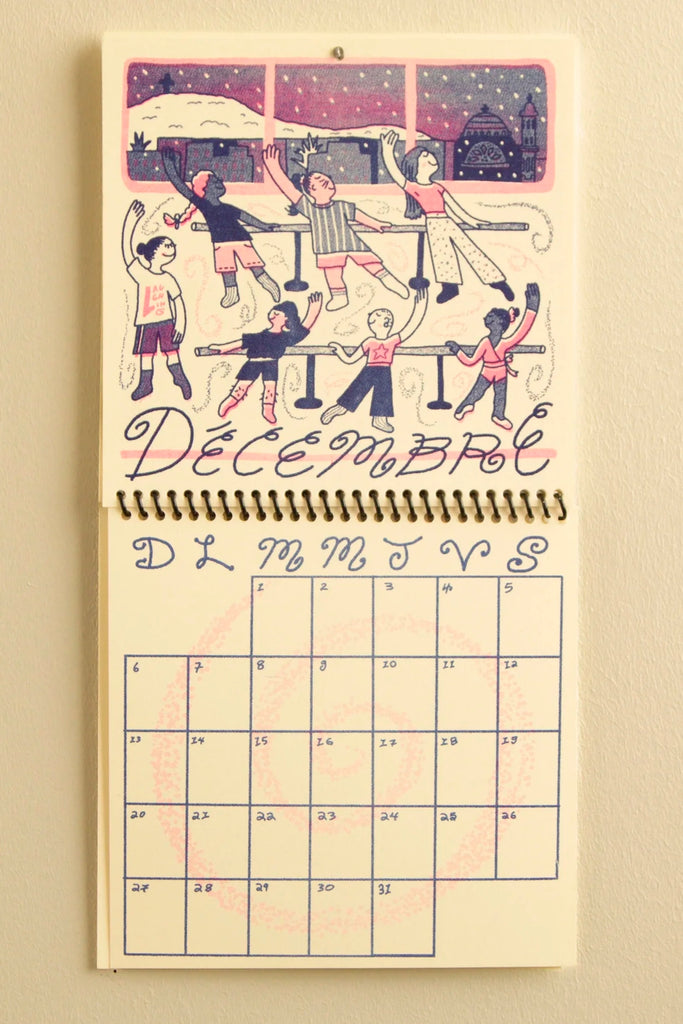 LAU
GH
ING
DÉCEMBRE
D L M M J V S
1 2 3 4 5
6 7 8 9 10 11 12
13 14 15 16 17 18 19
20 21 22 23 24 25 26
27 28 29 30 31